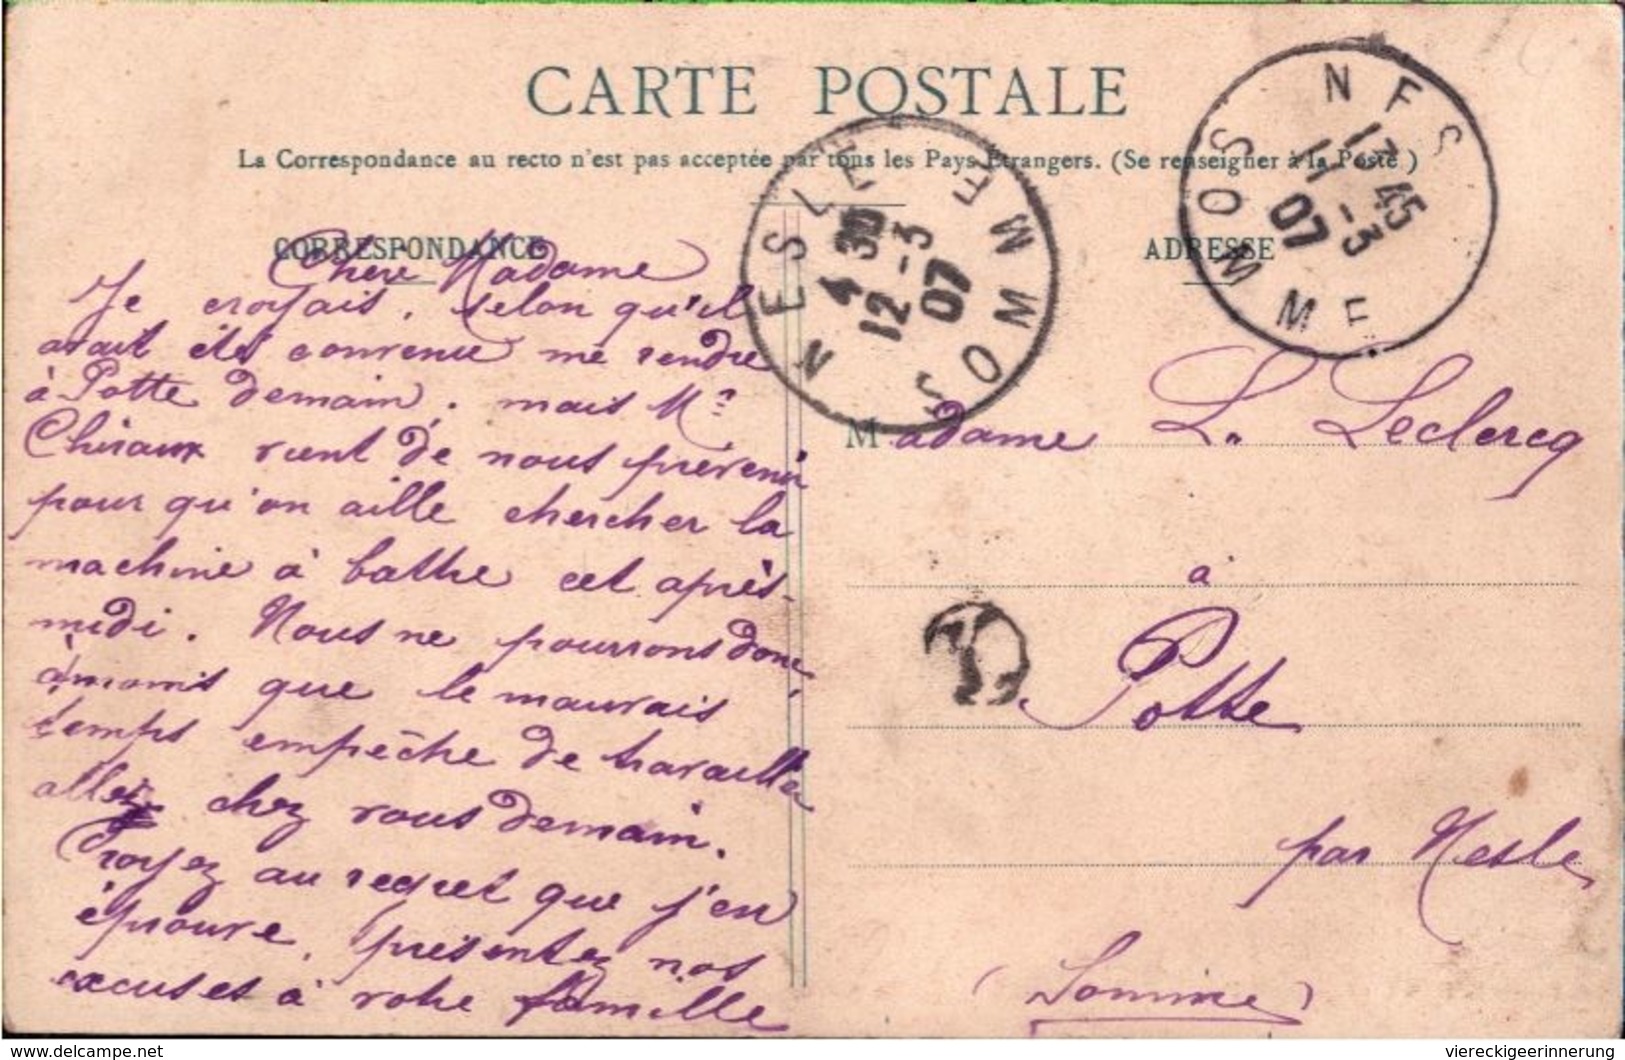 CARTE POSTALE
La Correspondance au recto n'est pas acceptée par tous les Pays Étrangers. (Se renseigner à la Poste)
CORRESPONDANCE
ADRESSE
NESLE
SOMME
4 30
12 -3
07
SOMME
13 45
11 -3
07
Chere Madame
Je croyais, selon qu'il
avait été convenu me rendre
à Potte demain, mais Mr
vient de nous prevenir
pour qu'on aille chercher la
machine à bathe cet après-
midi. Nous ne pourrons donc,
àmoins que le mauvais
temps empêche de travailler
aller chez vous demain.
Croyez au regret que j'en
éprouve, présentez nos
excuses à votre famille
Madame L. Leclercq
à
Potte
par Nesle
(Somme)
delcampe.net
viereckigeerinnerung